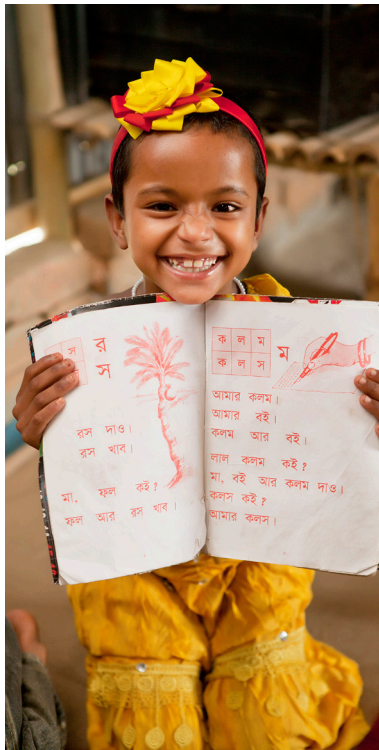 স
র
স
রস দাও।
রস খাব।
মা, ফল কই?
ফল আর রস খাব।
ক ল ম
ক ল স
ম
আমার কলম।
আমার বই।
কলম আর বই।
লাল কলম কই?
মা, বই আর কলম দাও।
কলস কই?
আমার কলস।